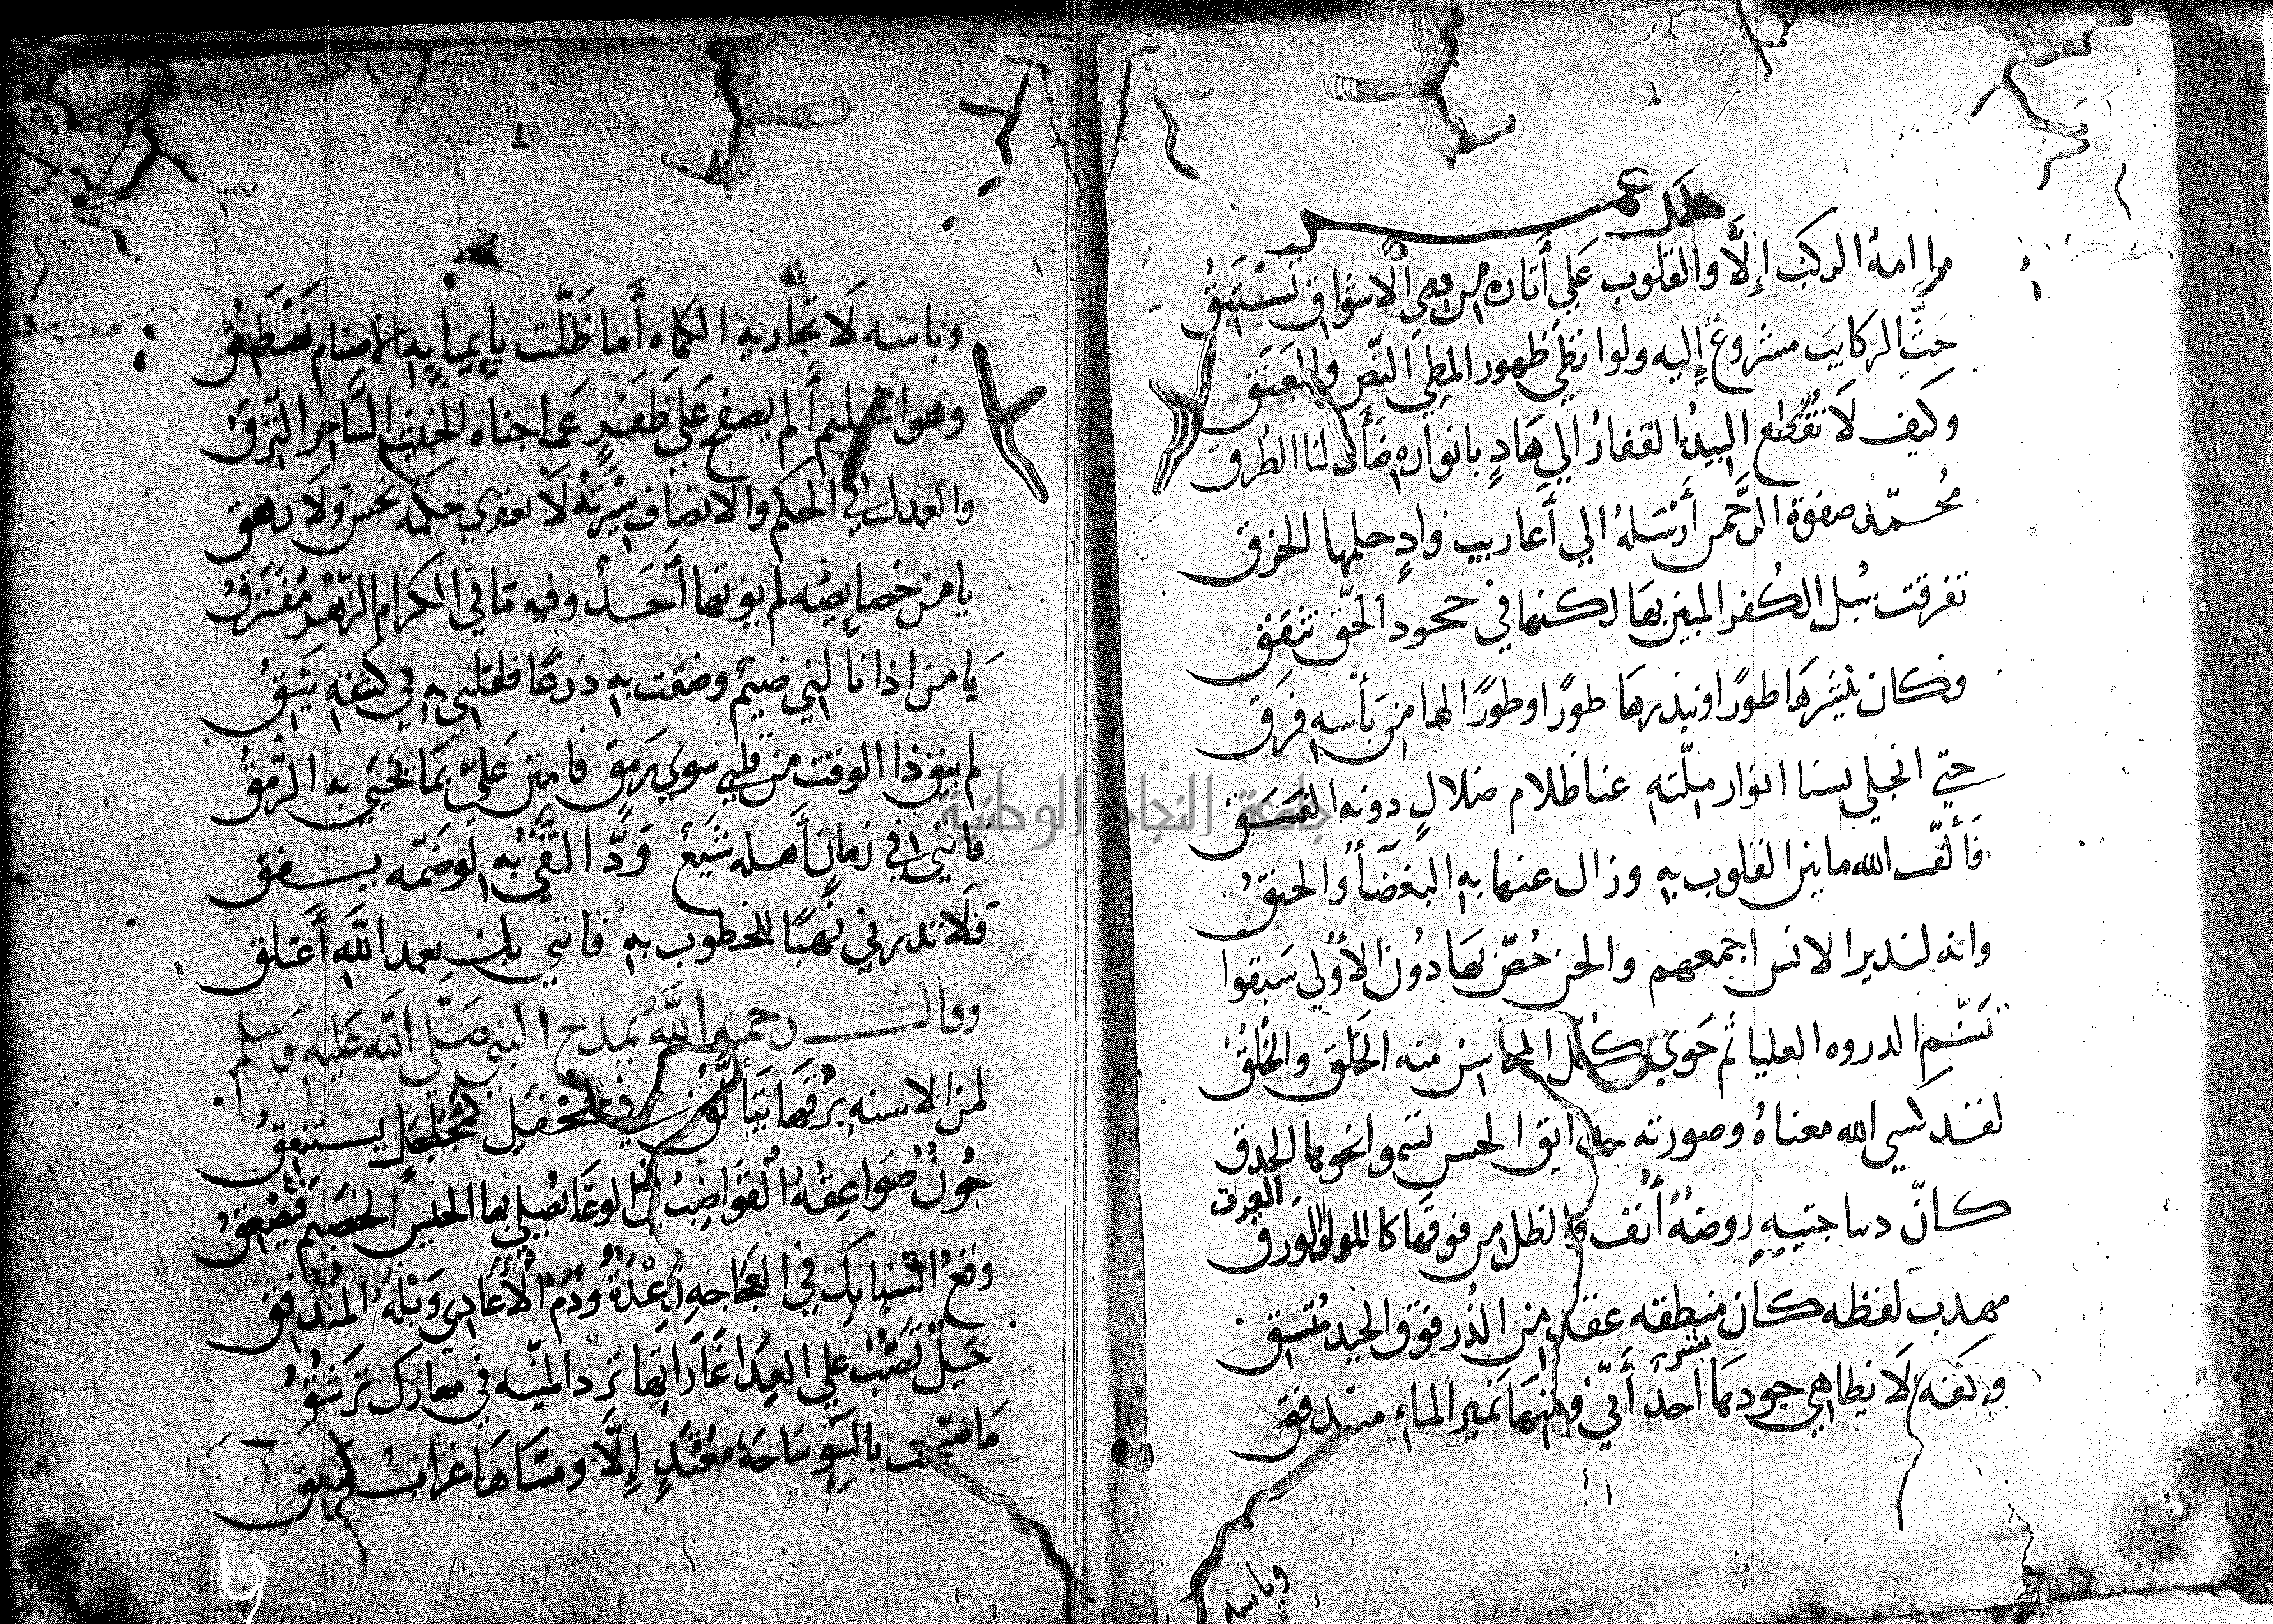 ما امه الركب إلَّا والقلوب عَلي أَثاره من الاشواق تَسْتَبِقُ
حَثّ الركايب مشروعٌ إليه ولو انظي ظهور المطي النّص والعَنَق
وكيف لَا تُقطع البيدُ القفارُ الي هَادٍ بانواره ضأت لنا الطُرق
مُحمّد صفوة الرَّحمن أرْسَلهُ الي أَعاريب وادٍ حلمها الخرق
تفرقت سُبل الكُفر المبين بهَا لكنها في جحود الحّق تتفق
وكان يُبشرهَا طورًا وينذرهَا طورًا وطورًا لها من بَأسه فرَق
حتي انجلي بسنا انوار ملّته عنا ظلام ضلالٍ دونه الغَسَق
فَألَّف الله ما بين القلوب به وزال عنها به البغضَأ والحنقُ
وانه لنذير الانس اجمعهم والجن خُصّ بهَا دُون الأولي سَبقوا
تَسنّم الدروه العليا ثم حَوي كلّ المحاسن منه الخَلق والخُلقُ
لقد كسي الله معناهُ وصورته ملابق الحسن تسموا نحوها الحدق
كأنّ ديباجتيه روضهٌ أُنُف والظل من فوقها كاللولو العرق
مهدب لفظه كان منطقه عقد من الدُر فوق الجيد مُتّسق
وكفه لَا يظاهي جودهَا احد أنّي ومنها نمير الماء مندفق
وباسه
وباسه لَا تجاريه الكماه أَما ظَلّت بإيمايه الاصنام تَصْطَفقُ
وهو الحليم أَلم يصفح عَلي ظَفَرٍ عَما جناه الخبيث السَّاحر النّزقُ
والعدل في الحكم والانصاف سِيْرَتُهُ لَا يعتري حكمَه بخس ولَا رهق
يا من خصايصُه لم يوتها أَحَدٌ وفيه مَا في الكرام الزُّهْر مُفتَرقُ
يَا من اذا نالني ضيْم وضقت به ذرعًا فقلبي به في كشفه يَثِقُ
لم يبق ذا الوقت من قلبي سوي رَمَق فامنن عَليّ بمَا يَحيَي به الرّمقُ
فانني في زمانٍ أَهله شيع وَدَّ التقيُّ به لو ضَمّه نفق
فَلَا تدرني نهبًا للخطوب به فانني بك بعد اللّه أَعتلق
وقال رحمه اللَّهُ يمدح النبي صَلَّي اللَّه عَليه وَسلم
لمن الاسنه برقهَا يتألّقُ في جحفَلٍ كمُجَلجل يستبعِقُ
جُونٌ صَوَاعِقُهُ القَوَاضِبُ في الوغَا يُصلي بها الجيس الخَصيم فيَصْعقُ
وَقعُ السنابك في العجَاجه رعْدُهُ ودَمُ الأعَادي وَبْلهُ المتدفق
خَيلٌ تَصُبُّ علي العِدا غَارَاتِهَا تردِ المنيّه في معارك تَرشقُ
مَا صبّحت بالسّو سَاحَةَ مُعْتَدٍ إلَّا ومسَّاهَا غرابٌ ينعق